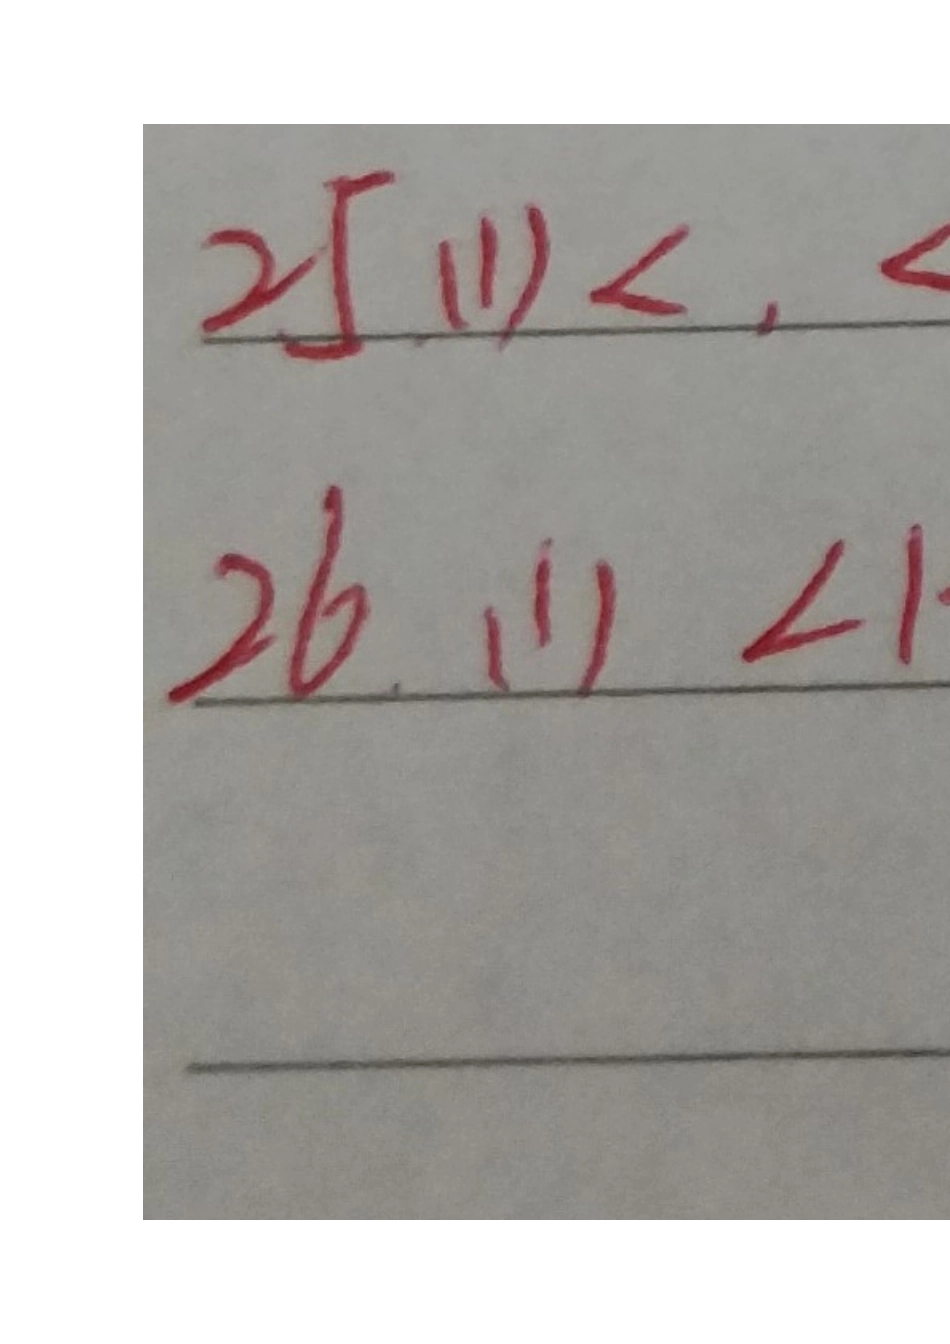 25.(1) < , <
26.(1) <1